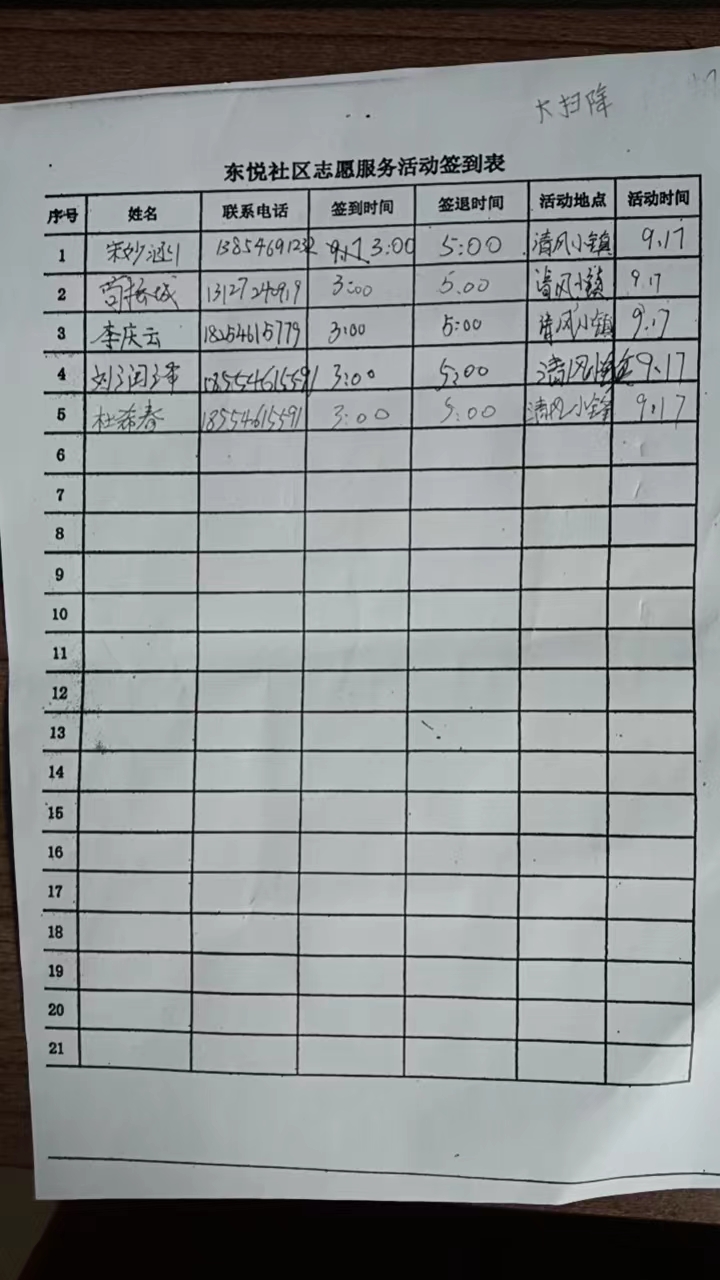 大扫除
东悦社区志愿服务活动签到表
序号 姓名 联系电话 签到时间 签退时间 活动地点 活动时间
1 宋妙涵 1385469123 9.17 3:00 5:00 清风小镇 9.17
2 13127240919 3:00 5.00 清风小镇 9.17
3 李庆云 18254615779 3:00 5:00 清风小镇 9.17
4 刘润泽 18554615591 3:00 5:00 清风小镇 9.17
5 杜希春 18554615591 3:00 5:00 清风小镇 9.17
6
7
8
9
10
11
12
13
14
15
16
17
18
19
20
21